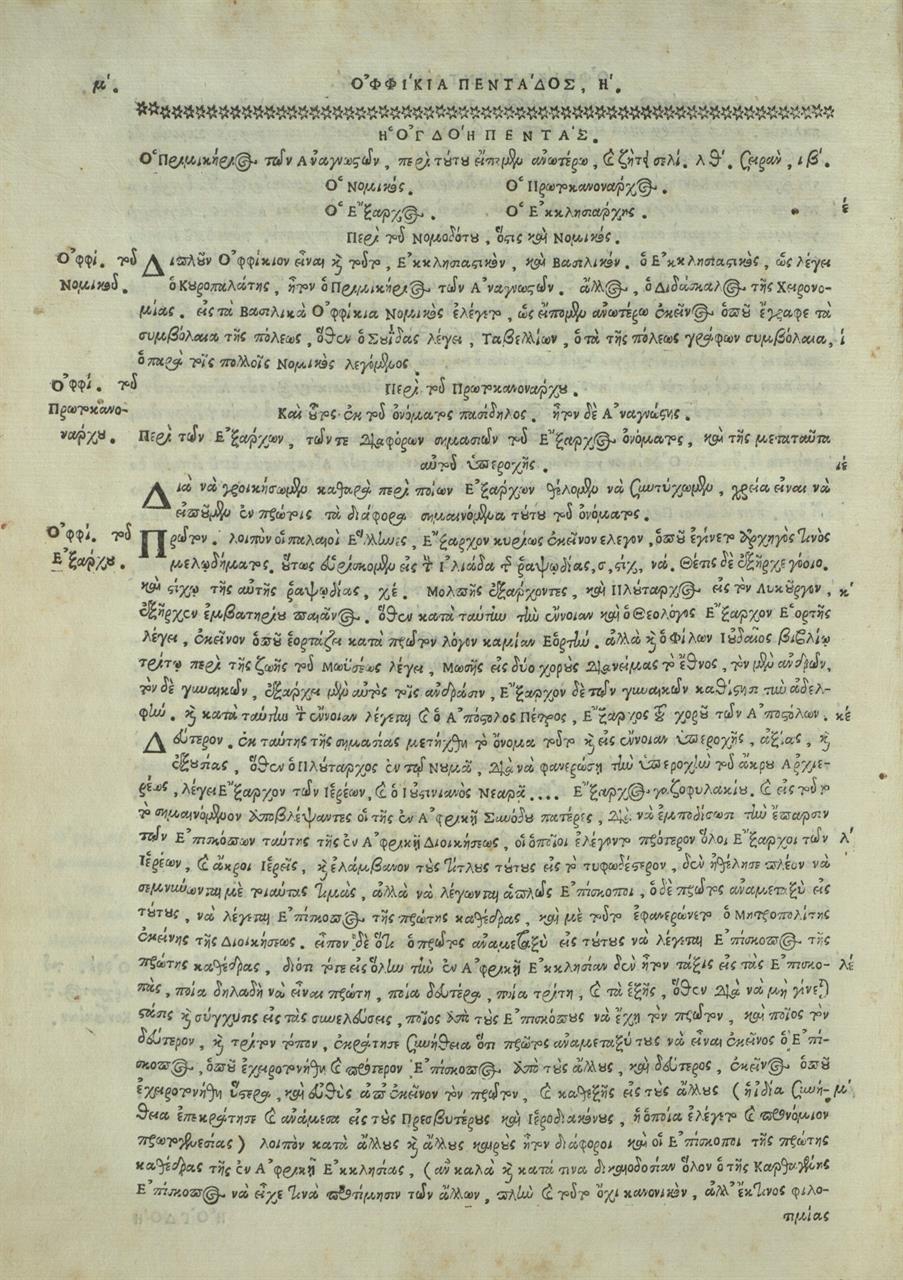 μ΄. ὈΦΦΊΚΙΑ ΠΕΝΤΆΔΟΣ, Η΄.
Ἡ ὈΓΔΌΗ ΠΕΝΤΆΣ.
Ὁ Πριμικήριος τῶν Ἀναγνωστῶν, περὶ τούτου εἴπομεν ἀνωτέρω, καὶ ζήτει σελί. λθ΄. σειρὰν, ιβ΄.
Ὁ Νομικός. Ὁ Πρωτοκανονάρχος.
Ὁ Ἔξαρχος. Ὁ Ἐκκλησιάρχης. έ
Περὶ τοῦ Νομοδότου, ὅστις καὶ Νομικός.
Ὀφφί. τοῦ Νομικοῦ.
Διπλοῦν Ὀφφίκιον εἶναι καὶ τοῦτο, Ἐκκλησιαστικὸν, καὶ Βασιλικόν. ὁ Ἐκκλησιαστικὸς, ὡς λέγει
ὁ Κυροπαλάτης, ἦτον ὁ Πριμικήριος τῶν Ἀναγνωστῶν. ἄλλος, ὁ Διδάσκαλος τῆς Χειρονο-
μίας. εἰς τὰ Βασιλικὰ Ὀφφίκια Νομικὸς ἐλέγετο, ὡς εἴπομεν ἀνωτέρω ἐκεῖνος ὁποῦ ἔγραφε τὰ
συμβόλαια τῆς πόλεως, ὅθεν ὁ Σουΐδας λέγει, Ταβελλίων, ὁ τὰ τῆς πόλεως γράφων συμβόλαια, ί
ὁ παρὰ τοῖς πολλοῖς Νομικὸς λεγόμενος.
Ὀφφί. τοῦ Πρωτοκανο-
ναρχου.
Περὶ τοῦ Πρωτοκανονάρχου.
Καὶ οὗτος ἐκ τοῦ ὀνόματος πασίδηλος. ἦτον δὲ Ἀναγνώστης.
Περὶ τῶν Ἐξάρχων, τῶν τε διαφόρων σημασιῶν τοῦ Ἔξαρχος ὀνόματος, καὶ τῆς μεταταῦτα
αὐτοῦ ὑπεροχῆς. ιέ
Διὰ νὰ γροικήσωμεν καθαρὰ περὶ ποίων Ἐξάρχων θέλομεν νὰ συντύχωμεν, χρεία εἶναι νὰ
εἰποῦμεν ἐν πρώτοις τὰ διάφορα σημαινόμενα τούτου τοῦ ὀνόματος.
Ὀφφί. τοῦ Ἐξάρχου.
Πρῶτον. λοιπὸν οἱ παλαιοὶ Ἕλληνες, Ἔξαρχον κυρίως ἐκεῖνον ἔλεγον, ὁποῦ ἐγίνετο ἀρχηγὸς τινὸς
μελῳδήματος. οὕτως εὑρίσκομεν εἰς τὴν Ἰλιάδα τῆς ῥαψῳδίας, σ, στίχ, νά. Θέτις δὲ ἐξῆρχε γόοιο.
καὶ στίχῳ τῆς αὐτῆς ῥαψῳδίας, χέ. Μολπῆς ἐξάρχοντες, καὶ Πλούταρχος εἰς τὸν Λυκοῦργον, κ΄
ἐξῆρχεν ἐμβατηρίου παιᾶνος. ὅθεν κατὰ ταύτην τὴν ἔννοιαν καὶ ὁ Θεολόγος Ἔξαρχον Ἑορτῆς
λέγει, ἐκεῖνον ὁποῦ ἑορτάζει κατὰ πρῶτον λόγον καμίαν Ἑορτήν. ἀλλὰ καὶ ὁ Φίλων Ἰουδαῖος βιβλίῳ
τρίτῳ περὶ τῆς ζωῆς τοῦ Μωϋσέως λέγει, Μωσῆς εἰς δύο χοροὺς διανείμας τὸ ἔθνος, τὸν μὲν ἀνδρῶν,
τὸν δὲ γυναικῶν, ἐξάρχει μὲν αὐτὸς τοῖς ἀνδράσιν, Ἔξαρχον δὲ τῶν γυναικῶν καθίστησι τὴν ἀδελ-
φήν. καὶ κατὰ ταύτην τὴν ἔννοιαν λέγεται καὶ ὁ Ἀπόστολος Πέτρος, Ἔξαρχος τοῦ χοροῦ τῶν Ἀποστόλων. κέ
Δεύτερον. ἐκ ταύτης τῆς σημασίας μετήχθη τὸ ὄνομα τοῦτο καὶ εἰς ἔννοιαν ὑπεροχῆς, ἀξίας, καὶ
ἐξουσίας, ὅθεν ὁ Πλούταρχος ἐν τῷ Νουμᾷ, διὰ νὰ φανερώσῃ τὴν ὑπεροχὴν τοῦ ἄκρου Ἀρχιε-
ρέως, λέγει Ἔξαρχον τῶν Ἱερέων, καὶ ὁ Ἰουστινιανὸς Νεαρᾷ .... Ἔξαρχος γαζοφυλακίου. καὶ εἰς τοῦτο
τὸ σημαινόμενον ἀποβλέψαντες οἱ τῆς ἐν Ἀφρικῇ Συνόδου πατέρες, διὰ νὰ ἐμποδίσωσι τὴν ἔπαρσιν
τῶν Ἐπισκόπων ταύτης τῆς ἐν Ἀφρικῇ Διοικήσεως, οἱ ὁποῖοι ἐλέγοντο πρότερον ὅλοι Ἔξαρχοι τῶν λ΄
Ἱερέων, καὶ ἄκροι Ἱερεῖς, καὶ ἐλάμβανον τοὺς τίτλους τούτους εἰς τὸ τυφωδέστερον, δὲν ἠθέλησε πλέον νὰ
σεμνύνωνται μὲ τοιαύτας τιμὰς, ἀλλὰ νὰ λέγωνται ἁπλῶς Ἐπίσκοποι, ὁ δὲ πρῶτος ἀναμεταξὺ εἰς
τούτους, νὰ λέγεται Ἐπίσκοπος τῆς πρώτης καθέδρας, καὶ μὲ τοῦτο ἐφανερώνετο ὁ Μητροπολίτης
ἐκείνης τῆς Διοικήσεως. εἶπον δὲ ὅτι ὁ πρῶτος ἀναμεταξὺ εἰς τούτους νὰ λέγεται Ἐπίσκοπος τῆς
πρώτης καθέδρας, διότι τότε εἰς ὅλην τὴν ἐν Ἀφρικῇ Ἐκκλησίαν δὲν ἦτον τάξις εἰς τὰς Ἐπισκο- λέ
πὰς, ποία δηλαδὴ νὰ εἶναι πρώτη, ποία δευτέρα, ποία τρίτη, καὶ τὰ ἑξῆς, ὅθεν διὰ νὰ μὴ γίνεται
στάσις καὶ σύγχυσις εἰς τὰς συνελεύσεις, ποῖος ἀπὸ τοὺς Ἐπισκόπους νὰ ἔχῃ τὸν πρῶτον, καὶ ποῖος τὸν
δεύτερον, καὶ τρίτον τόπον, ἐκράτησε συνήθεια ὅτι πρῶτος ἀναμεταξύ τους νὰ εἶναι ἐκεῖνος ὁ Ἐπί-
σκοπος, ὁποῦ ἐχειροτονήθη καὶ πρότερον Ἐπίσκοπος ἀπὸ τοὺς ἄλλους, καὶ δεύτερος, ἐκεῖνος ὁποῦ
ἐχειροτονήθη ὕστερα, καὶ εὐθὺς ἀπ' ἐκεῖνον τὸν πρῶτον, καὶ καθεξῆς εἰς τοὺς ἄλλους (ἡ ἰδία συνή- μ΄
θεια ἐπεκράτησε καὶ ἀνάμεσα εἰς τοὺς Πρεσβυτέρους καὶ Ἱεροδιακόνους, ἡ ὁποία ἐλέγετο καὶ προνόμιον
πρωτοκαθεσίας) λοιπὸν κατὰ ἄλλους καὶ ἄλλους καιροὺς ἦτον διάφοροι καὶ οἱ Ἐπίσκοποι τῆς πρώτης
καθέδρας τῆς ἐν Ἀφρικῇ Ἐκκλησίας, (ἂν καλὰ καὶ κατά τινα δικαιοδοσίαν ὅλον ὁ τῆς Καρθαγένης
Ἐπίσκοπος νὰ εἶχε τινὰ προτίμησιν τῶν ἄλλων, πλὴν καὶ τοῦτο ὄχι κανονικὸν, ἀλλ' ἔκ τινος φιλο-
τιμίας